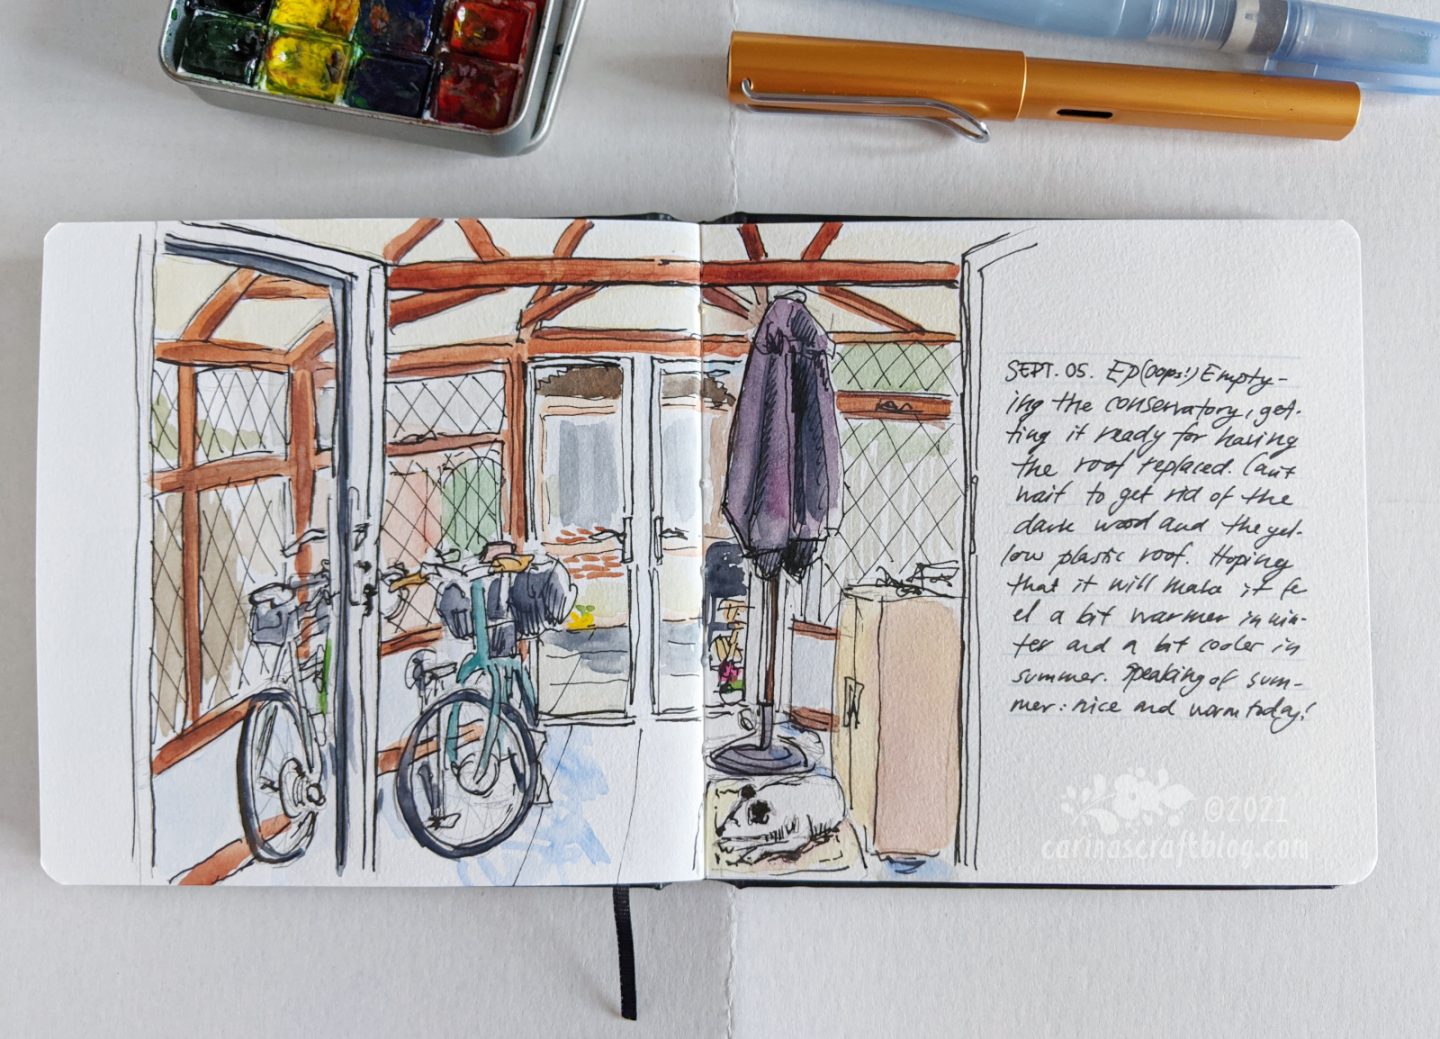 SEPT. 05. EP(oops!) Empty-
ing the conservatory, get-
ting it ready for having
the roof replaced. Can't
wait to get rid of the
dark wood and the yel-
low plastic roof. Hoping
that it will make it fe
el a bit warmer in win-
ter and a bit cooler in
summer. Speaking of sum-
mer: nice and warm today!
©2021
carinascraftblog.com